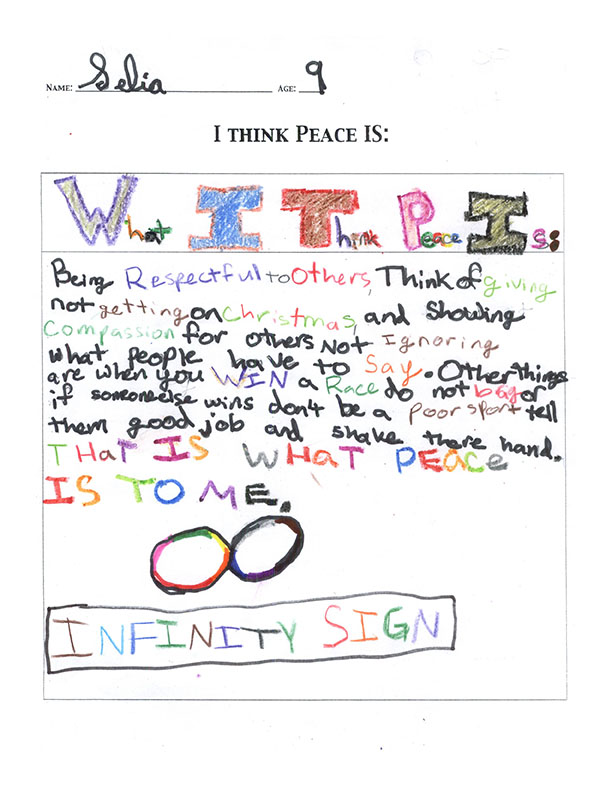 NAME: Selia AGE: 9
I THINK PEACE IS:
What I Think Peace Is:
Being Respectful to Others, Think of giving
not getting on Christmas, and showing
Compassion for others Not Ignoring
what people have to Say. Other things
are when you WIN a Race do not bag or
if someone else wins don't be a poor sport tell
them good job and shake there hand.
THaT IS WHaT PEACE
IS TO ME.
INFINITY SIGN